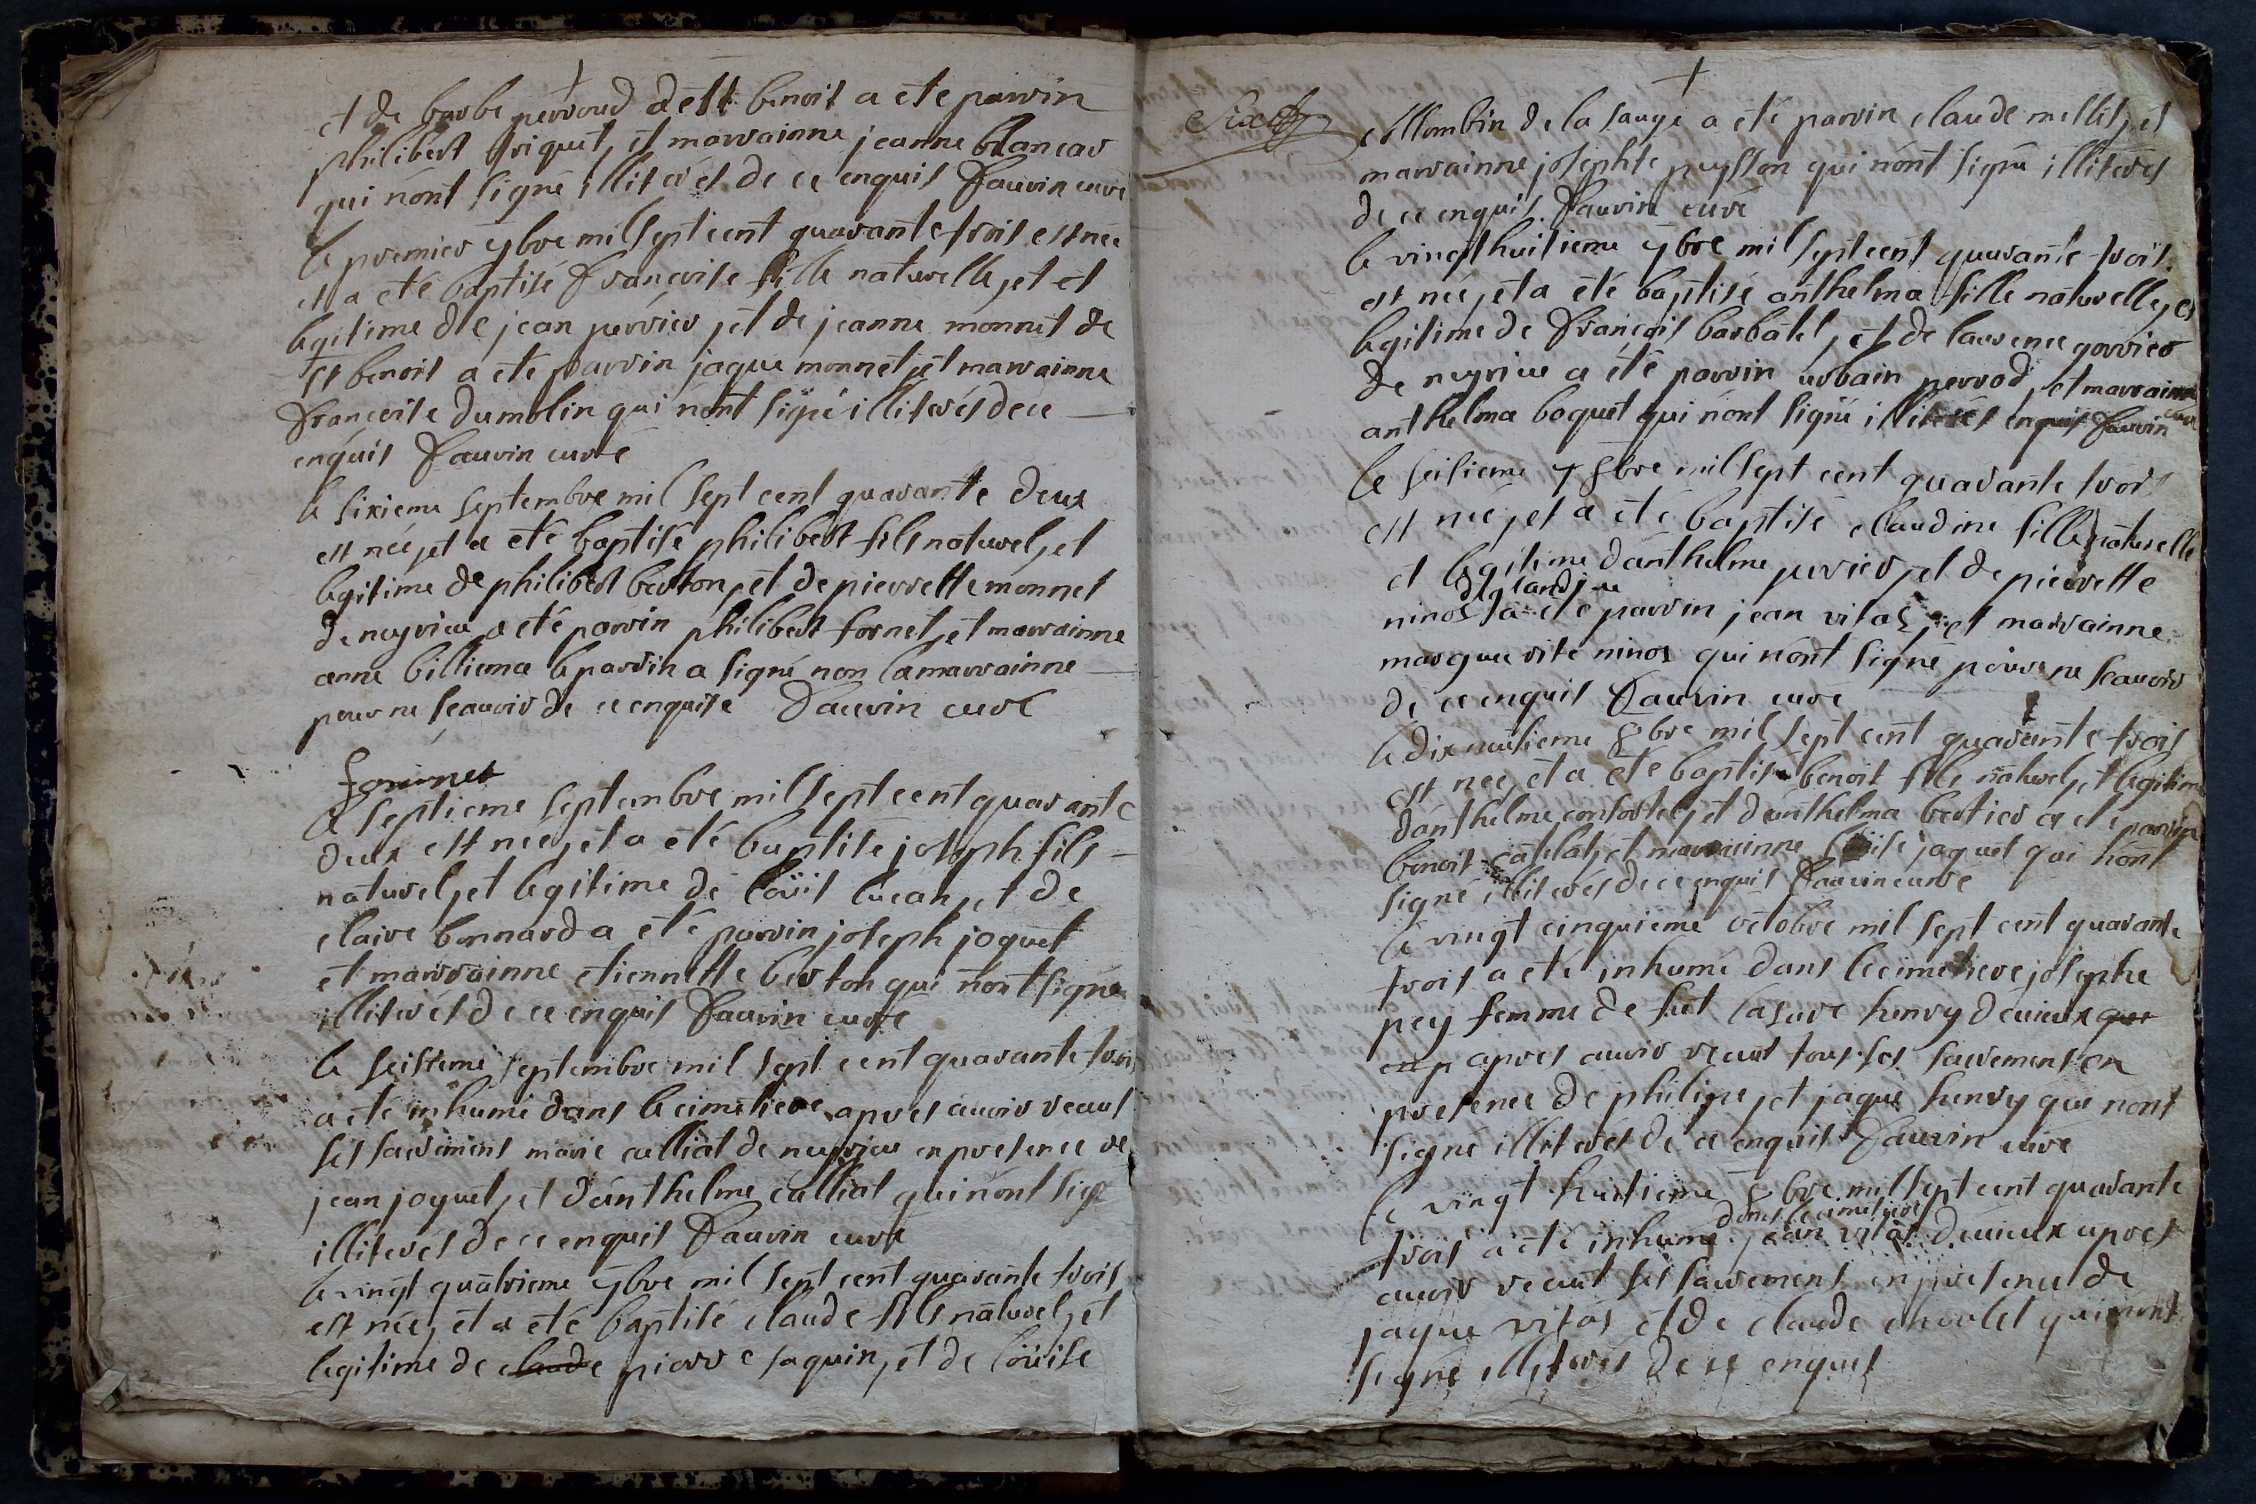 et de barbe perroud de st benoit a ete parrin
philibert briquet, et marrainne jeanne blancar
qui n'ont signé illiterés de ce enquis Fauvin curé
le premier 7bre mil sept cent quarante trois est nee
et a eté baptisé françoise fille naturelle, et et
legitime de jean perrier, et de jeanne monnet de
st benoit a eté parrin jaque monnet, et marrainne
françoise dumolin qui n'ont signé illiterés de ce
enquis Fauvin curé
le sixieme septembre mil sept cent quarante deux
est née, et a eté baptisé philibert fils naturel, et
legitime de philibert berton, et de pierrette monnet
de neyrieu a eté parrin philibert fornet, et marrainne
anne billiema le parrin a signé non la marrainne
pour ne scauoir de ce enquise Fauvin curé
forirnet
le septieme septembre mil sept cent quarante
deux est nee, et a eté baptisé joseph fils
naturel, et legitime de loüis lucan, et de
claire bonnard a eté parrin joseph joquet
et marrainne etiennette berton qui n'ont signé
illiterés de ce enquis Fauvin curé
le seistieme septembre mil sept cent quarante trois
a eté inhumé dans le cimetiere apres auoir recus
ses sacrements marie culliat de neyrieu en presence de
jean joquet, et d'anthelme culliat qui n'ont sig
illiterés de ce enquis Fauvin curé
le vingt quatrieme 7bre mil sept cent quarante trois
est née, et a eté baptisé claude fils naturel, et
legitime de claude pierre saquin, et de loüise
collombin de la sauge a eté parrin claude millet, et
marrainne josephte puysson qui n'ont signé illiterés
de ce enquis Fauvin curé
le vingt huitieme 7bre mil sept cent quarante trois
est nee, et a eté baptisé anthelma fille naturelle, et
legitime de françois barbatel, et de laurence gorrier
de neyrieu a eté parrin urbain perrod, et marrainne
anthelma boquet qui n'ont signé illiterés enquis Fauvin
curé
le seisieme 8bre mil sept cent quarante trois
est née, et a eté baptisé claudine fille naturelle
et legitime d'anthelme perrier, et de pierrette
ninos a eté parrin jean vitos, et marrainne
marguerite ninos qui n'ont signé pour ne scauoir
de ce enquis Fauvin curé
le dix neufieme 8bre mil sept cent quarante trois
est nee, et a eté baptisé benoit fils naturel, et legitime
d'anthelme consortel, et d'anthelma bertier a eté parrin
benoit catelat, et marrainne loüise jaquet qui n'ont
signé illiterés de ce enquis Fauvin curé
le vingt cinquieme octobre mil sept cent quarante
trois a eté inhumé dans le cimetiere josephe
pey femme de fut Casare henry deuieux que
en p apres auoir recus tous ses sacrements en
presence de philipe, et jaque henry que nont
signé illiterés de ce enquis Fauvin curé
le vingt huitieme 8bre mil sept cent quarante
dans le cimetiere
trois a eté inhumé jean vitos deuieux apres
auoir recut ses sacrements en presence de
jaque vitos et de claude cheulet qui n'ont
signé illiterés de ce enquis